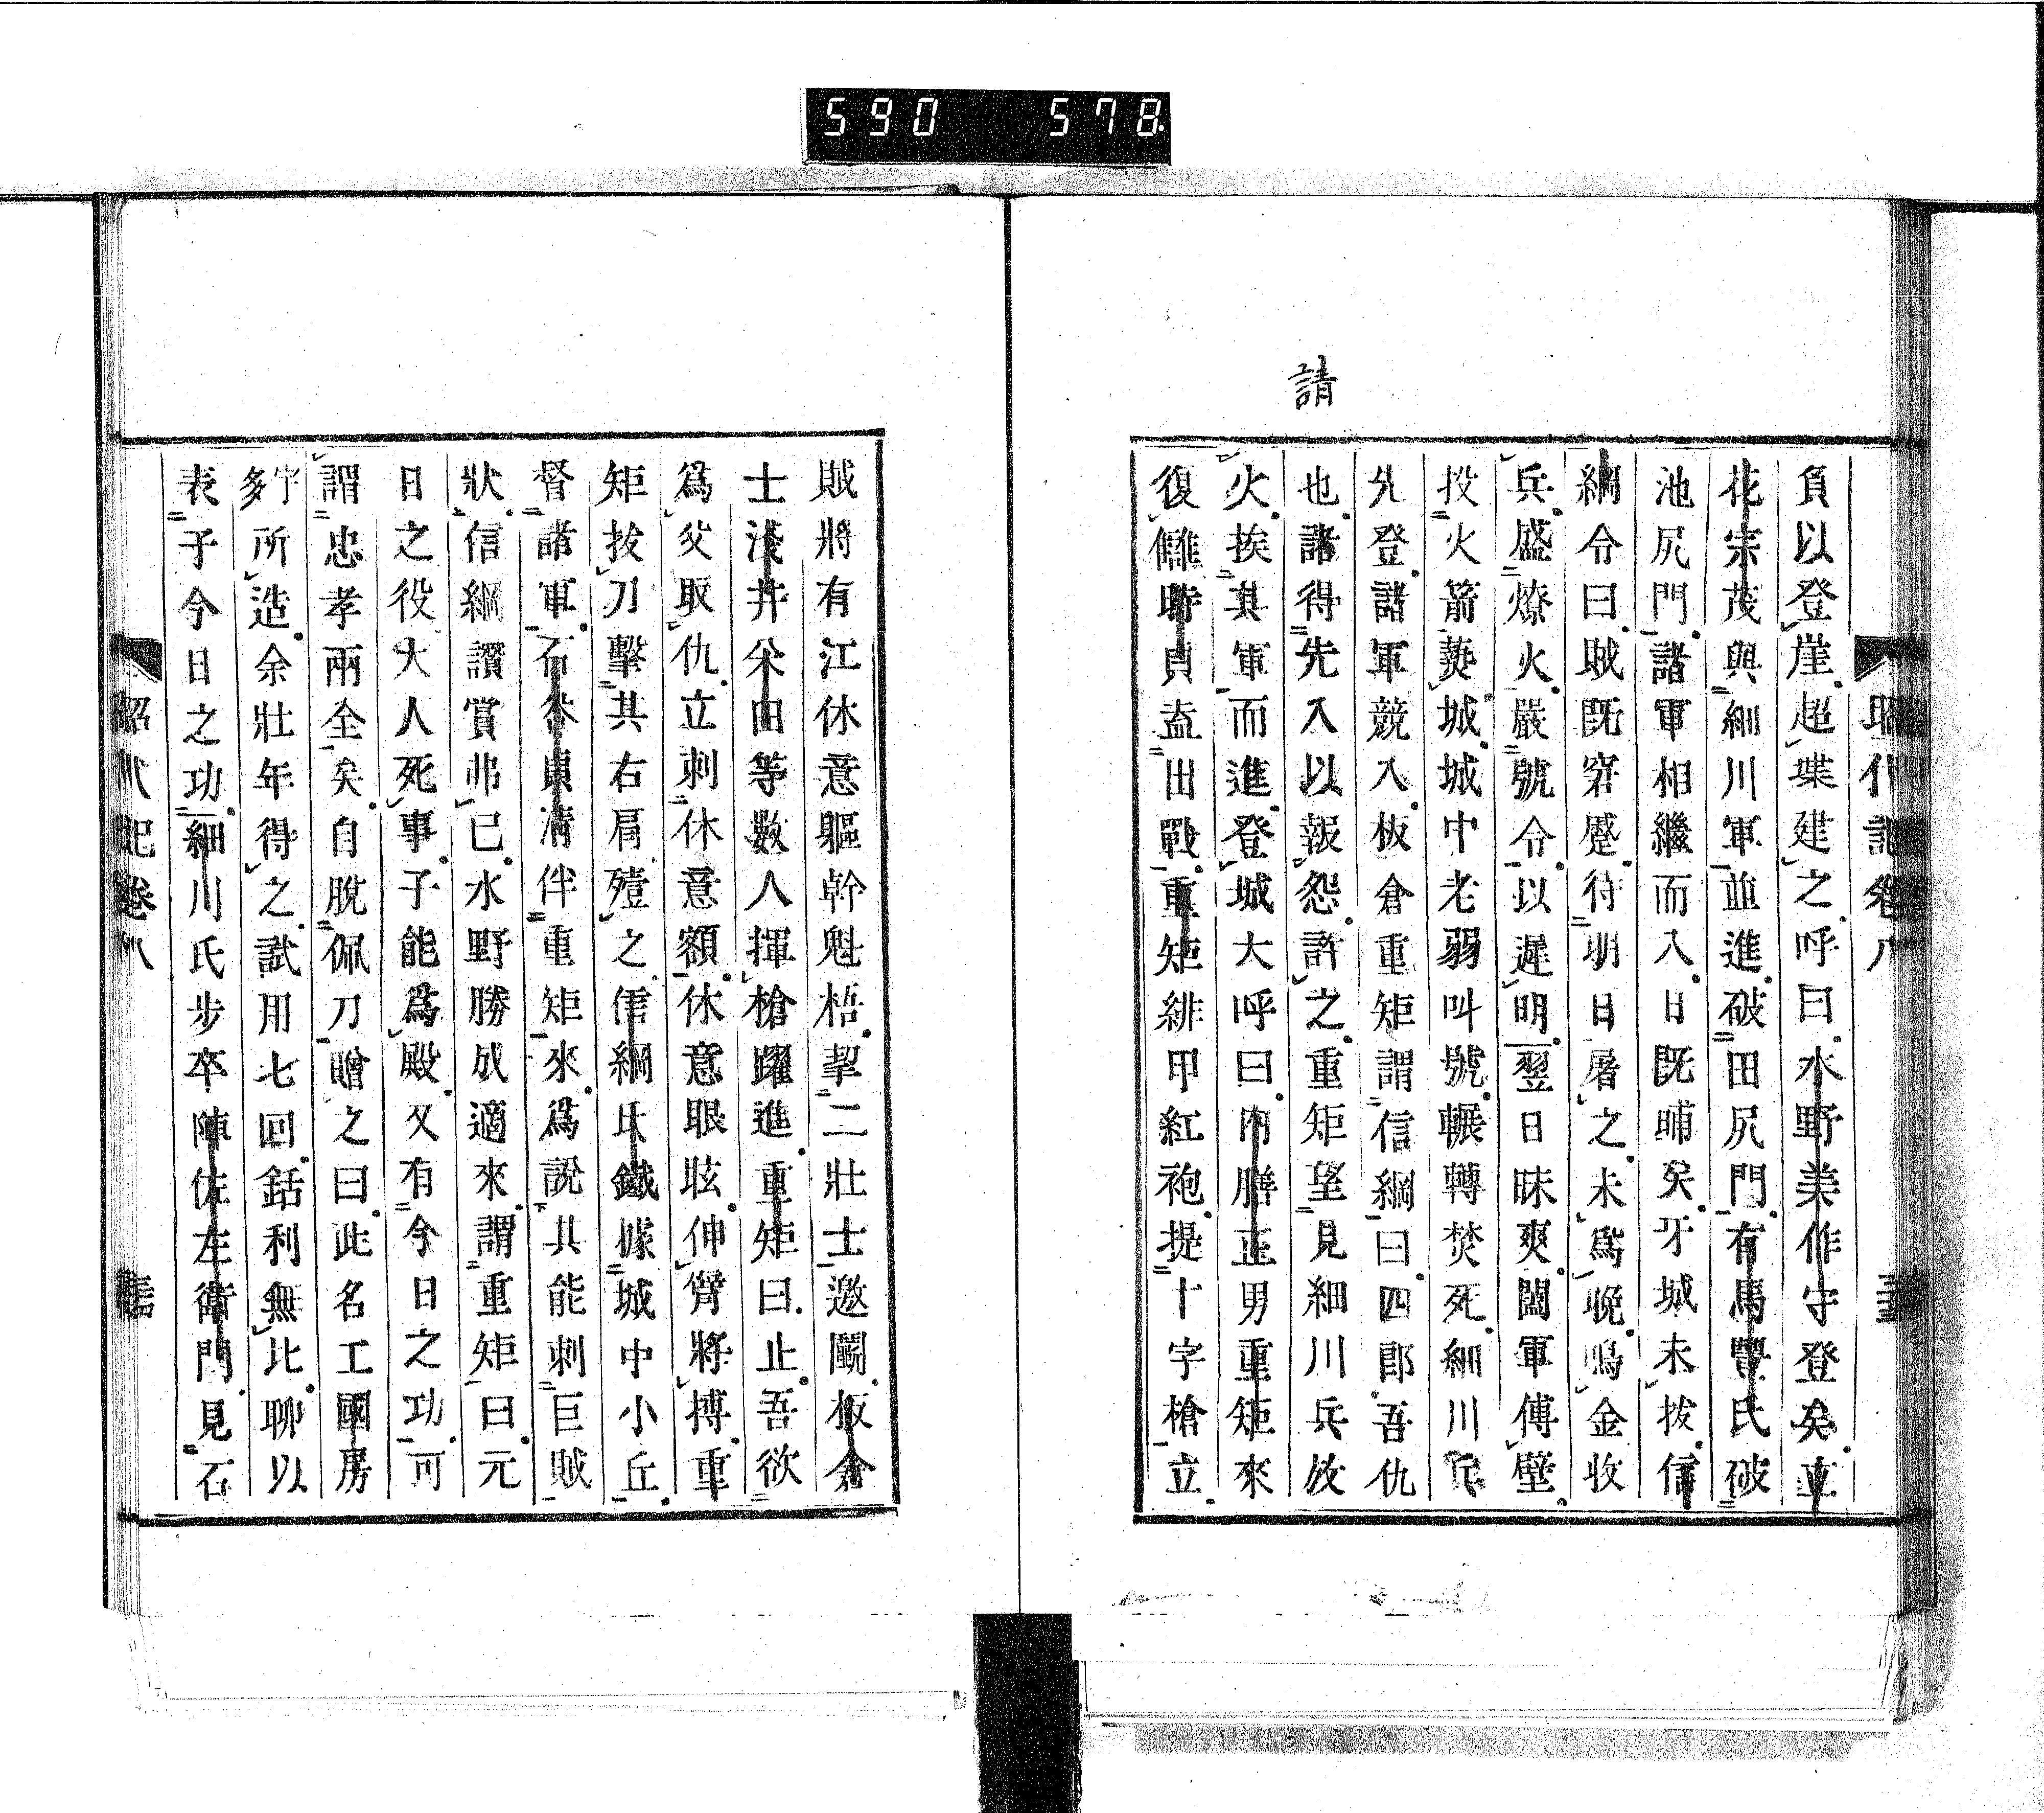 590 578
請
昭代記卷八
負以登崖超堞建之呼曰水野美作守登矣立
花宗茂與細川軍並進破田尻門有馬豐氏破
池尻門諸軍相繼而入日既晡矣牙城未拔信
綱令曰賊既窘蹙待明日屠之未爲晩鳴金收
兵盛燎火嚴號令以遲明翌日昧爽闔軍傅壁
投火箭爇城城中老弱叫號輾轉焚死細川氏
先登諸軍競入板倉重矩謂信綱曰四郎吾仇
也諸得先入以報怨許之重矩望見細川兵放
火挨其軍而進登城大呼曰内膳正男重矩來
復讎時貞盍出戰重矩緋甲紅袍提十字槍立
賊將有江休意軀幹魁梧挈二壯士邀鬭板倉
士淺井米田等數人揮槍躍進重矩曰止吾欲
爲父取仇立刺休意額休意眼眩伸臂將搏重
矩拔刀擊其右肩殪之信綱氏鐵據城中小丘
督諸軍石谷貞清伴重矩來爲說其能刺巨賊
狀信綱讚賞弗已水野勝成適來謂重矩曰元
日之役大人死事子能爲殿又有今日之功可
謂忠孝兩全矣自脫佩刀贈之曰此名工國房
字多所造余壯年得之試用七回銛利無比聊以
表子今日之功細川氏步卒陣佐左衞門見石
昭代記卷八